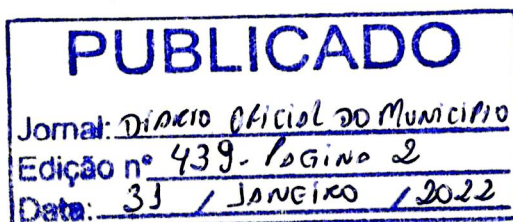 PUBLICADO
Jornal: DIÁRIO OFICIAL DO MUNICIPIO
Edição nº 439 - PAGINA 2
Data: 31 / JANEIRO / 2022